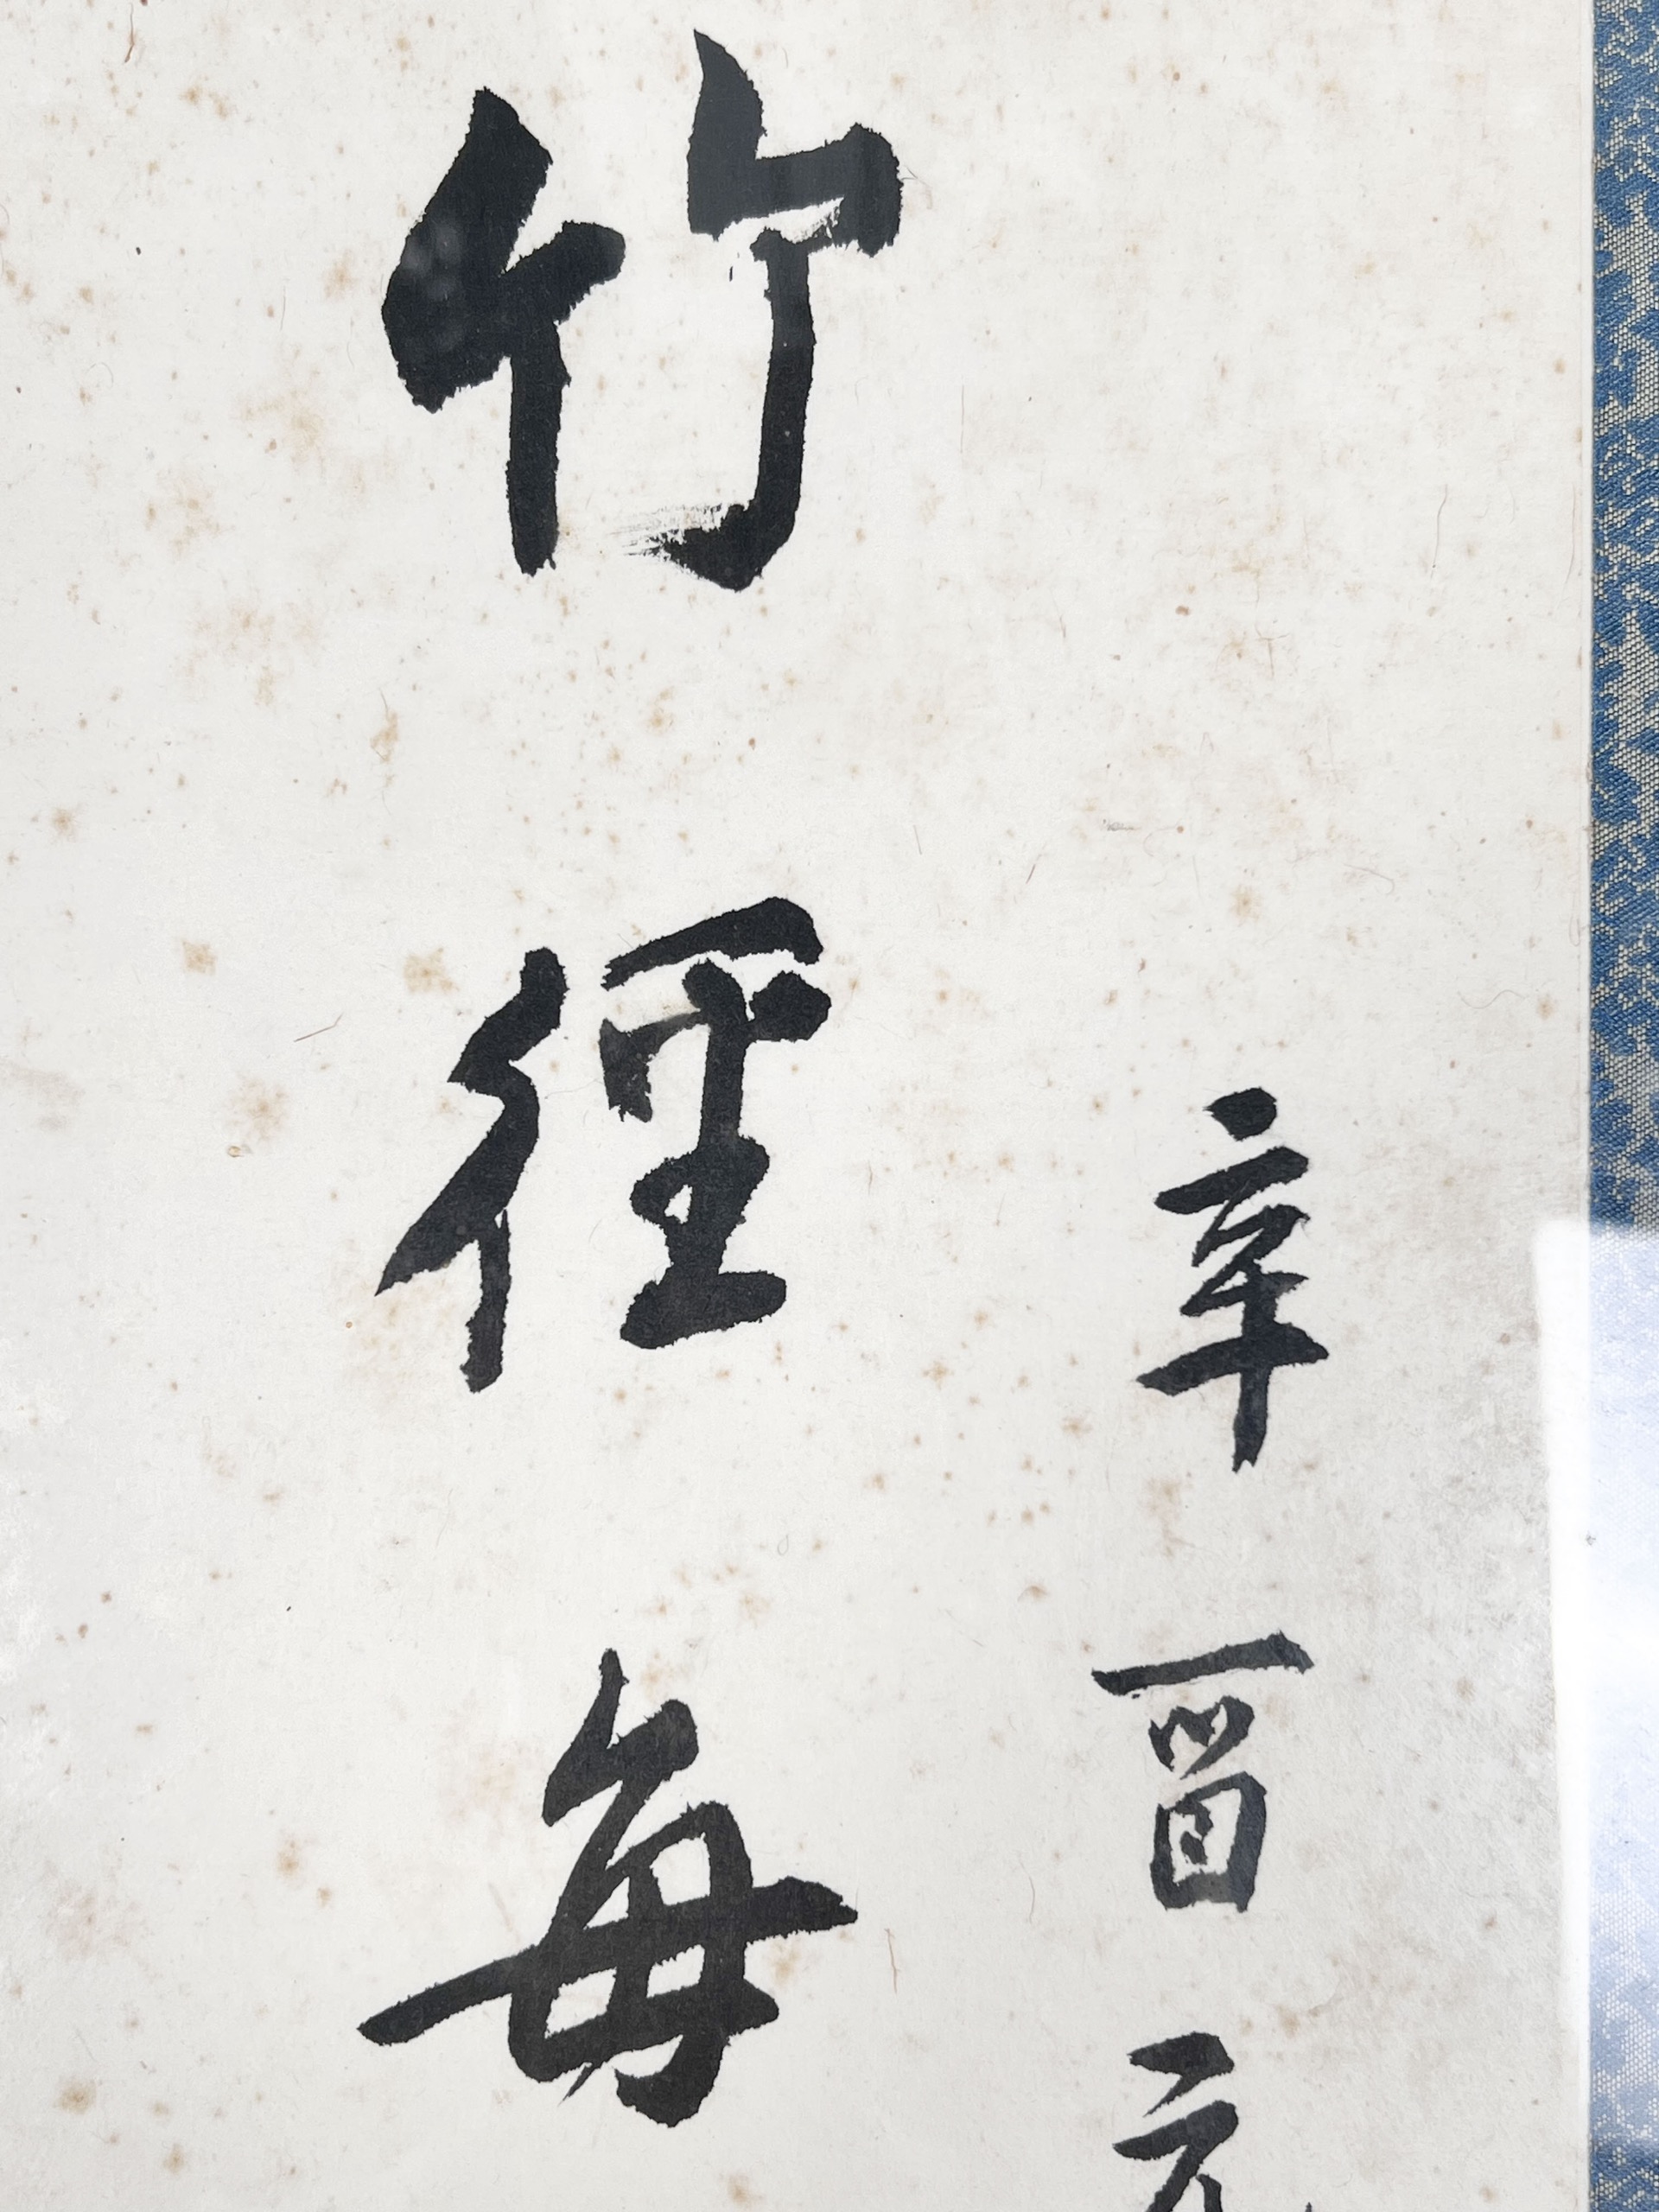 辛酉元
竹徑每